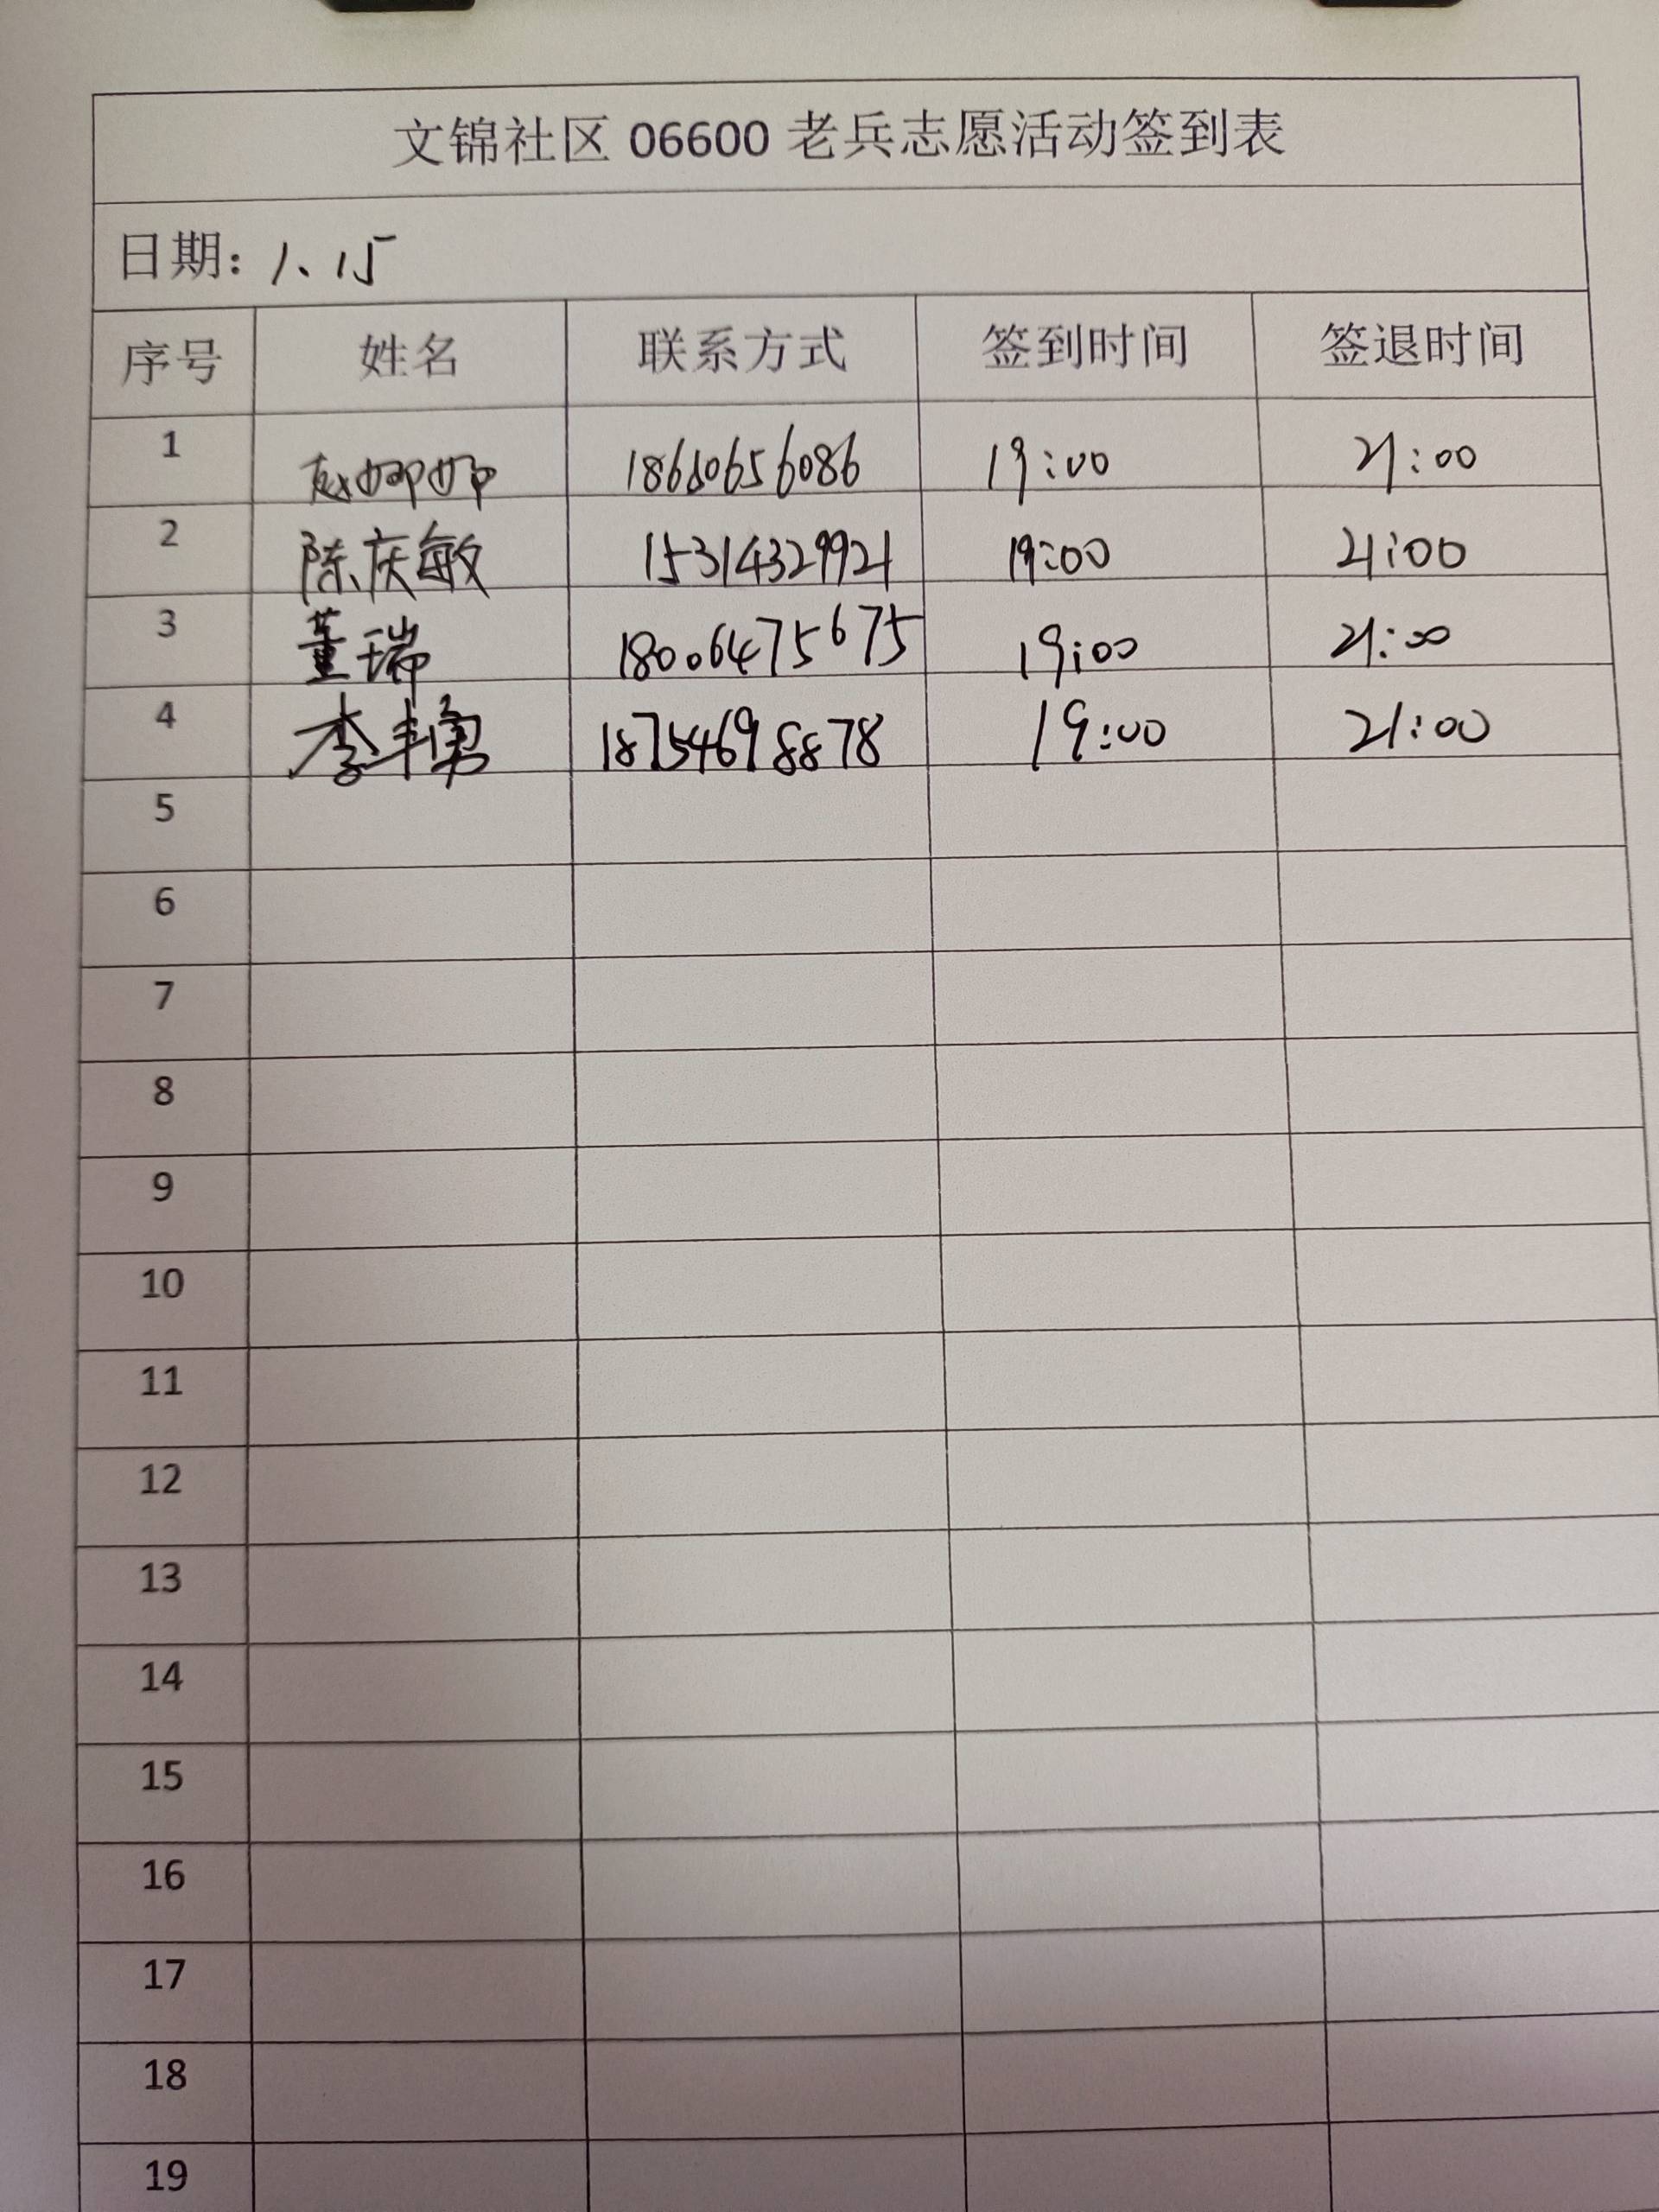 文锦社区 06600 老兵志愿活动签到表
日期: 1、15
序号 姓名 联系方式 签到时间 签退时间
1 赵娜娜 18660656086 19:00 21:00
2 陈庆敏 15314329921 19:00 21:00
3 董瑞 18006475675 19:00 21:00
4 李丰勇 18754698878 19:00 21:00
5
6
7
8
9
10
11
12
13
14
15
16
17
18
19